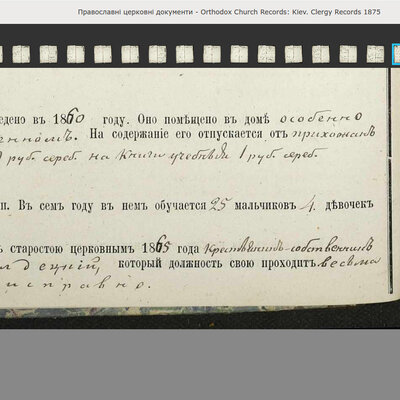 Православні церковні документи - Orthodox Church Records: Kiev. Clergy Records 1875
едено въ 1860 году. Оно помѣщено въ домѣ особенно
енномъ. На содержаніе его отпускается отъ прихожанъ
руб. сереб. на книги учебныя 1 руб. сереб.
п. Въ семъ году въ немъ обучается 25 мальчиковъ 4 дѣвочекъ
ъ старостою церковнымъ 1865 года крестьянинъ-собственникъ
лдецкій, который должность свою проходитъ весьма
исправно.